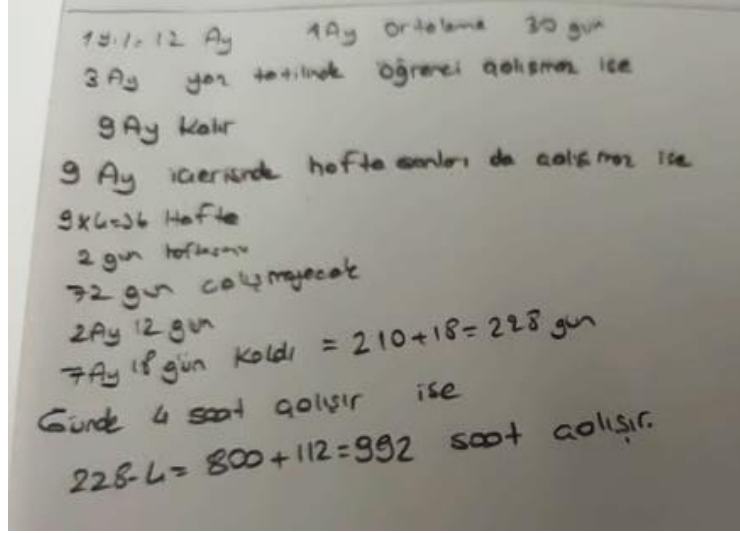 1 yıl = 12 Ay 1 Ay ortalama 30 gün
3 Ay yaz tatilinde öğrenci çalışmaz ise
9 Ay kalır
9 Ay içerisinde hafta sonları da çalışmaz ise
9x4=36 Hafta
2 gün haftasonu
72 gün çalışmayacak
2Ay 12 gün
7Ay 18 gün kaldı = 210+18=228 gün
Günde 4 saat çalışır ise
228·4= 800+112=992 saat çalışır.